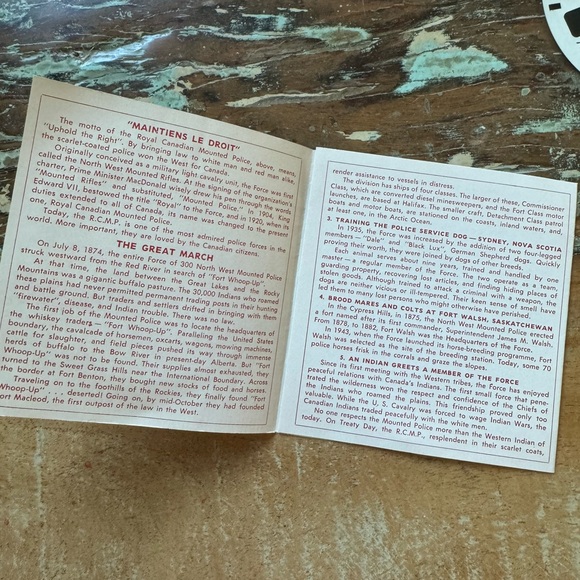 "MAINTIENS LE DROIT"
The motto of the Royal Canadian Mounted Police, above, means,
"Uphold the Right". By bringing law to white man and red man alike,
the scarlet-coated police won the West for Canada.
Originally conceived as a military light cavalry unit, the Force was first
called the North West Mounted Rifles. At the signing of the organization's
charter, Prime Minister MacDonald wisely drew his pen through the words
"Mounted Rifles" and substituted, "Mounted Police." In 1904, King
Edward VII, bestowed the title "Royal" to the Force, and in 1920, when its
duties extended to all of Canada, its name was changed to the present
one, Royal Canadian Mounted Police.
Today, the R.C.M.P. is one of the most admired police forces in the
world. More important, they are loved by the Canadian citizens.
THE GREAT MARCH
On July 8, 1874, the entire Force of 300 North West Mounted Police
struck westward from the Red River in search of "Fort Whoop-Up".
At that time, the land between the Great Lakes and the Rocky
Mountains was a gigantic buffalo pasture. The 30,000 Indians who roamed
these plains had never permitted permanent trading posts in their hunting
and battle ground. But traders and settlers drifted in bringing with them
"firewater", disease, and Indian trouble. There was no law.
The first job of the Mounted Police was to locate the headquarters of
the whiskey traders — "Fort Whoop-Up". Paralleling the United States
boundary, the cavalcade of horsemen, oxcarts, wagons, mowing machines,
cattle for slaughter, and field pieces pushed its way through immense
herds of buffalo to the Bow River in present-day Alberta. But "Fort
Whoop-Up" was not to be found. Their supplies almost exhausted, they
turned to the Sweet Grass Hills near the International Boundary. Across
the border at Fort Benton, they bought new stocks of food and horses.
Traveling on to the foothills of the Rockies, they finally found "Fort
Whoop-Up" . . . deserted! Going on, by mid-October they had founded
Fort Macleod, the first outpost of the law in the West.
render assistance to vessels in distress.
The division has ships of four classes. The larger of these, Commissioner
Class, which are converted diesel minesweepers, and the Fort Class motor
launches, are based at Halifax. The smaller craft, Detachment Class patrol
boats and motor boats, are stationed on the coasts, inland waters, and,
at least one, in the Arctic Ocean.
3. TRAINING THE POLICE SERVICE DOG — SYDNEY, NOVA SCOTIA
In 1935, the Force was increased by the addition of two four-legged
members — "Dale" and "Black Lux", German Shepherd dogs. Quickly
proving their worth, they were joined by dogs of other breeds.
Each animal serves about nine years, trained and handled by one
master — a regular member of the Force. The two operate as a team,
guarding property, recovering lost articles, and finding hiding places of
stolen goods. Although trained to attack a criminal with a weapon, the
dogs are neither vicious or ill-tempered. Their keen sense of smell have
led them to many lost persons who might otherwise have perished.
4. BROOD MARES AND COLTS AT FORT WALSH, SASKATCHEWAN
In the Cypress Hills, in 1875, the North West Mounted Police erected
a fort named after its first commander, Superintendent James M. Walsh.
From 1878, to 1882, Fort Walsh was the Headquarters of the Force.
In 1943, when the Force launched its horse-breeding programme, Fort
Walsh was selected as the site of the breeding station. Today, some 70
police horses frisk in the corrals and graze the slopes.
5. AN INDIAN GREETS A MEMBER OF THE FORCE
Since its first meeting with the Western tribes, the Force has enjoyed
peaceful relations with Canada's Indians. The first small force that pene-
trated the wilderness won the respect and confidence of the Chiefs of
the Indians who roamed the plains. This friendship proved only too
valuable. While the U. S. Cavalry was forced to wage Indian Wars, the
Canadian Indians traded peacefully with the white men.
No one respects the Mounted Police more than the Western Indian of
today. On Treaty Day, the R.C.M.P., resplendent in their scarlet coats,